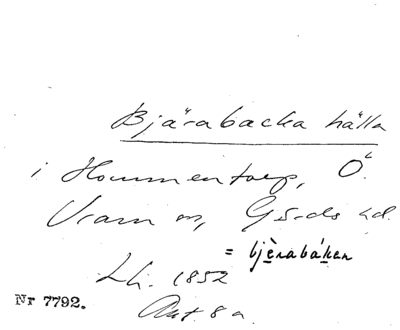 Bjärabacka hälla
i Hommentorp, Ö.
Vram sn, Gärds hd.
= bjèrabáken
Lh. 1852
Akt 8 a.
Nr 7792.